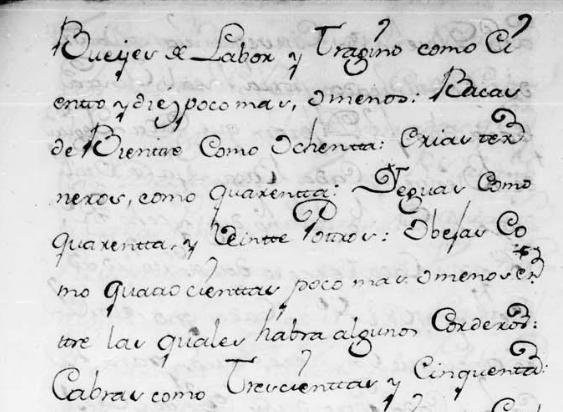 Bueyes de Labor y Tragino como Ci
entto y diez poco mas, omenos: Bacas
de Bientre Como Ochentta: Crias ter
neros, como quarentta: Yeguas Como
quarentta, y Veintte Pottros: Obejas Co
mo quatrocienttas poco mas omenos en
ttre las quales habra algunos Corderos:
Cabras como Trescienttas y Cinquentta: